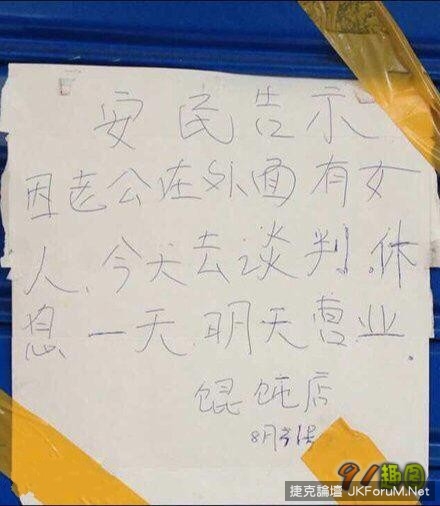 安民告示
因老公在外面有女
人、今天去谈判.休
息一天.明天营业.
馄饨店
8月
91趣图
捷克論壇 JKForuM.Net